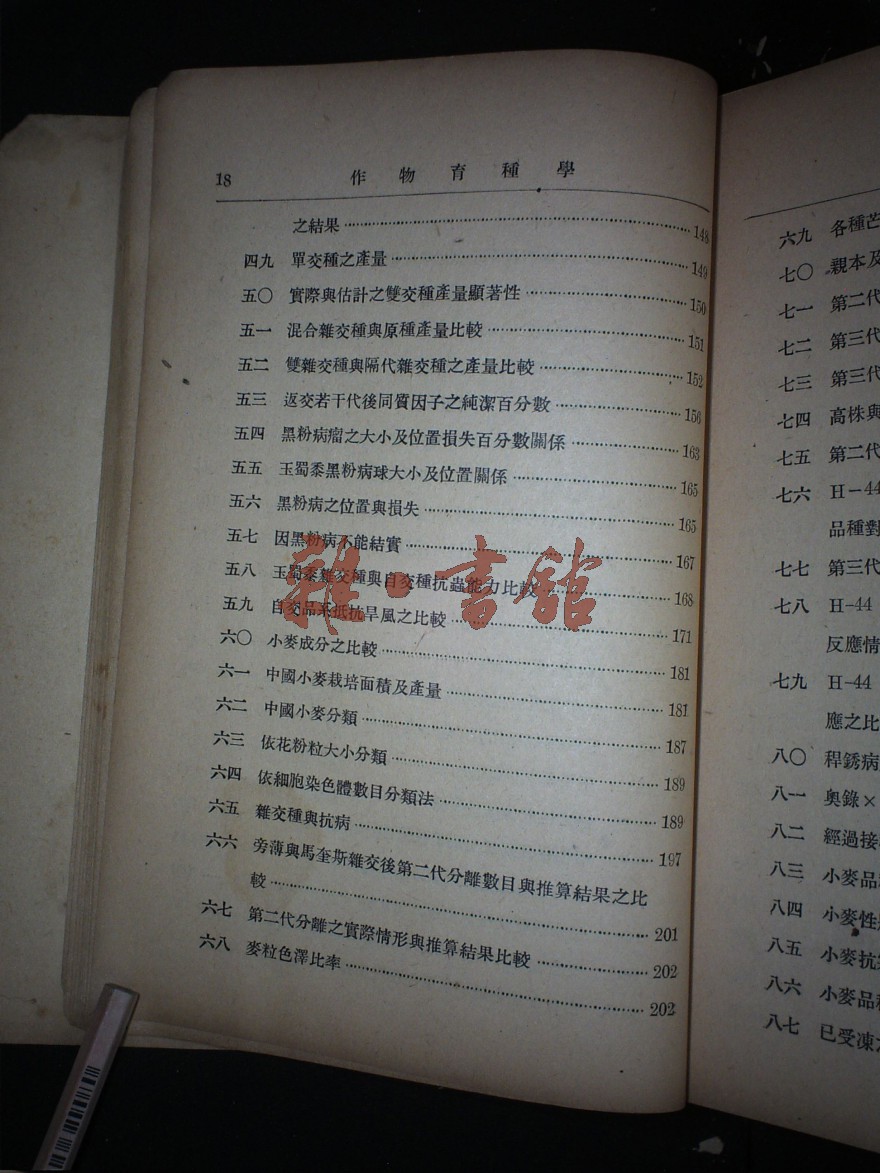 18 作物育種學
之結果……148
四九 單交種之產量……149
五〇 實際與估計之雙交種產量顯著性……150
五一 混合雜交種與原種產量比較……151
五二 雙雜交種與隔代雜交種之產量比較……152
五三 返交若干代後同質因子之純潔百分數……156
五四 黑粉病瘤之大小及位置損失百分數關係……163
五五 玉蜀黍黑粉病球大小及位置關係……165
五六 黑粉病之位置與損失……165
五七 因黑粉病不能結實……167
五八 玉蜀黍雜交種與自交種抗蟲能力比較……168
五九 自交品系抵抗旱風之比較……171
六〇 小麥成分之比較……181
六一 中國小麥栽培面積及產量……181
六二 中國小麥分類……187
六三 依花粉粒大小分類……189
六四 依細胞染色體數目分類法……189
六五 雜交種與抗病……197
六六 旁薄與馬奎斯雜交後第二代分離數目與推算結果之比
較……201
六七 第二代分離之實際情形與推算結果比較……202
六八 麥粒色澤比率……202
雜·書館
六九 各種芒
七〇 親本及
七一 第二代
七二 第三代
七三 第三代
七四 高株與
七五 第二代
七六 H-44
品種對
七七 第三代
七八 H-44
反應情
七九 H-44
應之比
八〇 稈銹病
八一 奧錄×
八二 經過接
八三 小麥品
八四 小麥性
八五 小麥抗
八六 小麥品
八七 已受凍